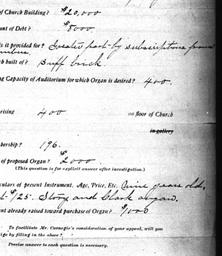 of Church Building? $20,000
unt of Debt? $8000
is it provided for? Greater part by subscriptions from
members.
ch built of? Buff brick
ng Capacity of Auditorium for which Organ is desired? 400.
rising 400 on floor of Church
in gallery
bership? 196.
of proposed Organ? $2000
(This question is for explicit answer after investigation.)
culars of present Instrument. Age, Price, Etc. Nine years old,
$125. Story and Clark organ.
nt already raised toward purchase of Organ? $1000
To facilitate Mr. Carnegie's consideration of your appeal, will you
ge by filling in the above?
Precise answer to each question is necessary.